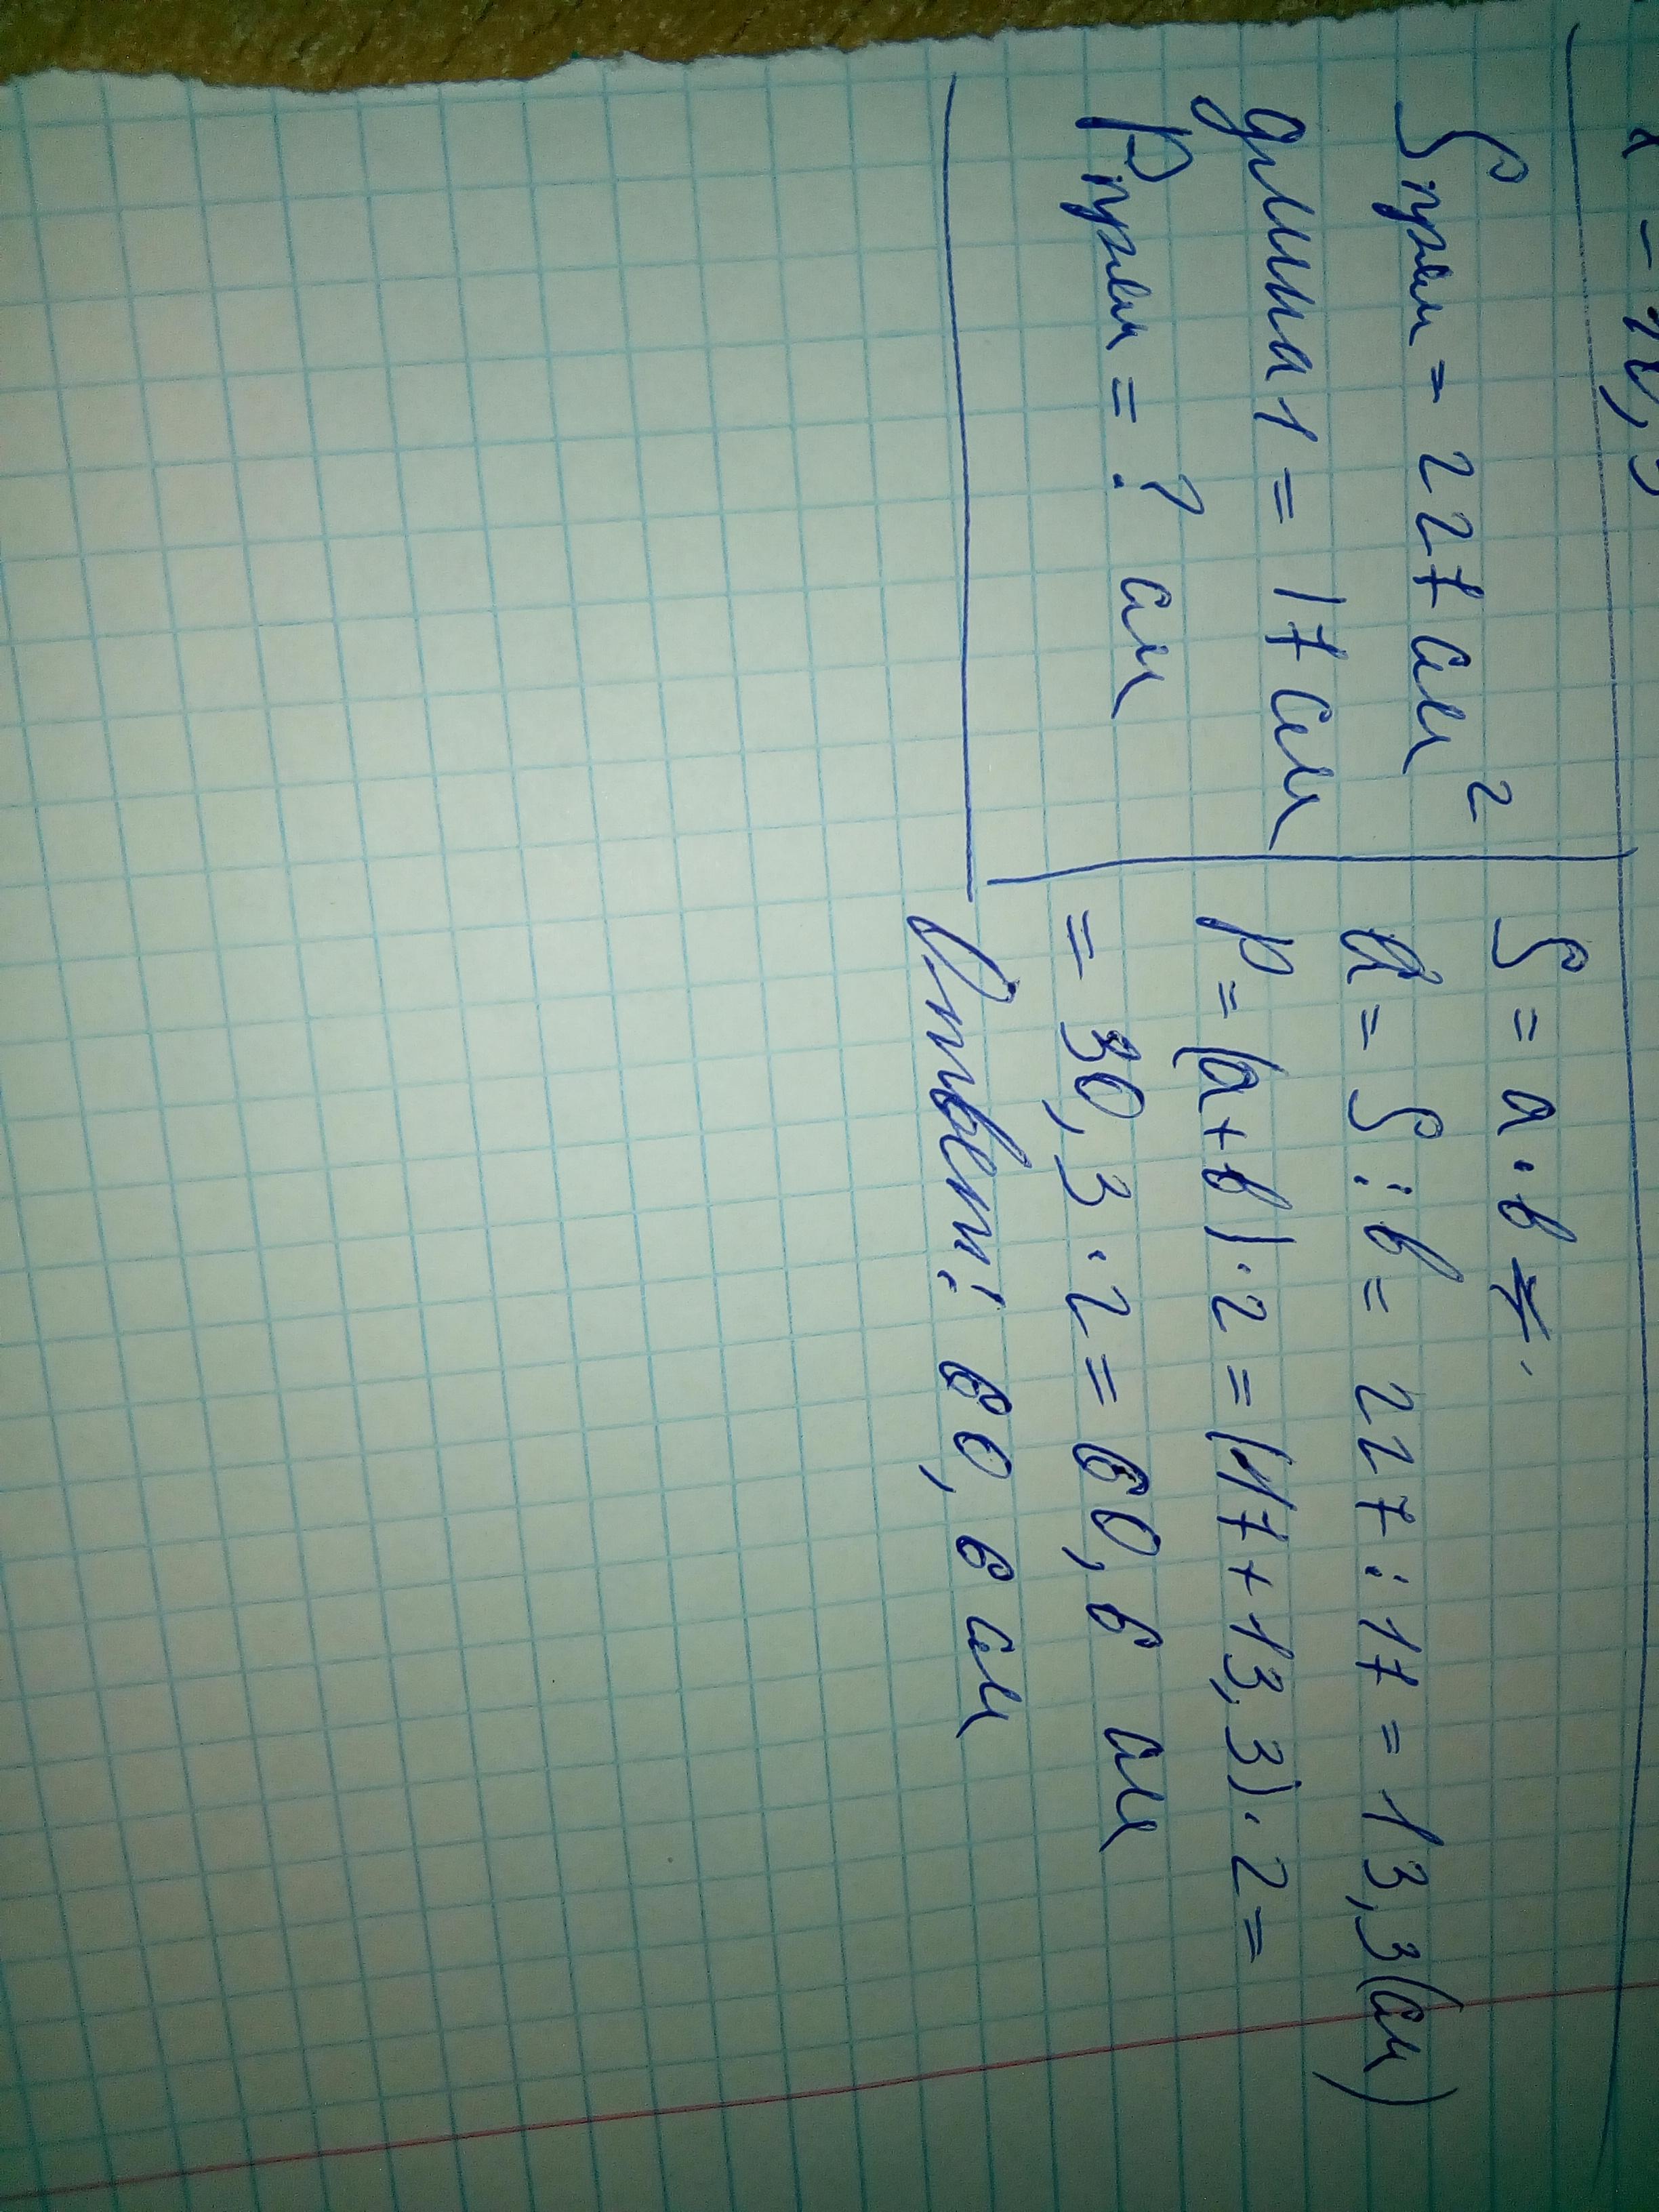 Sпрям = 227 см²
длина 1 = 17 см
Pпрям = ? см
S = a · b
a = S : b = 227 : 17 = 13,3 (см)
P = (a + b) · 2 = (17 + 13,3) · 2 =
= 30,3 · 2 = 60,6 см
Ответ: 60,6 см